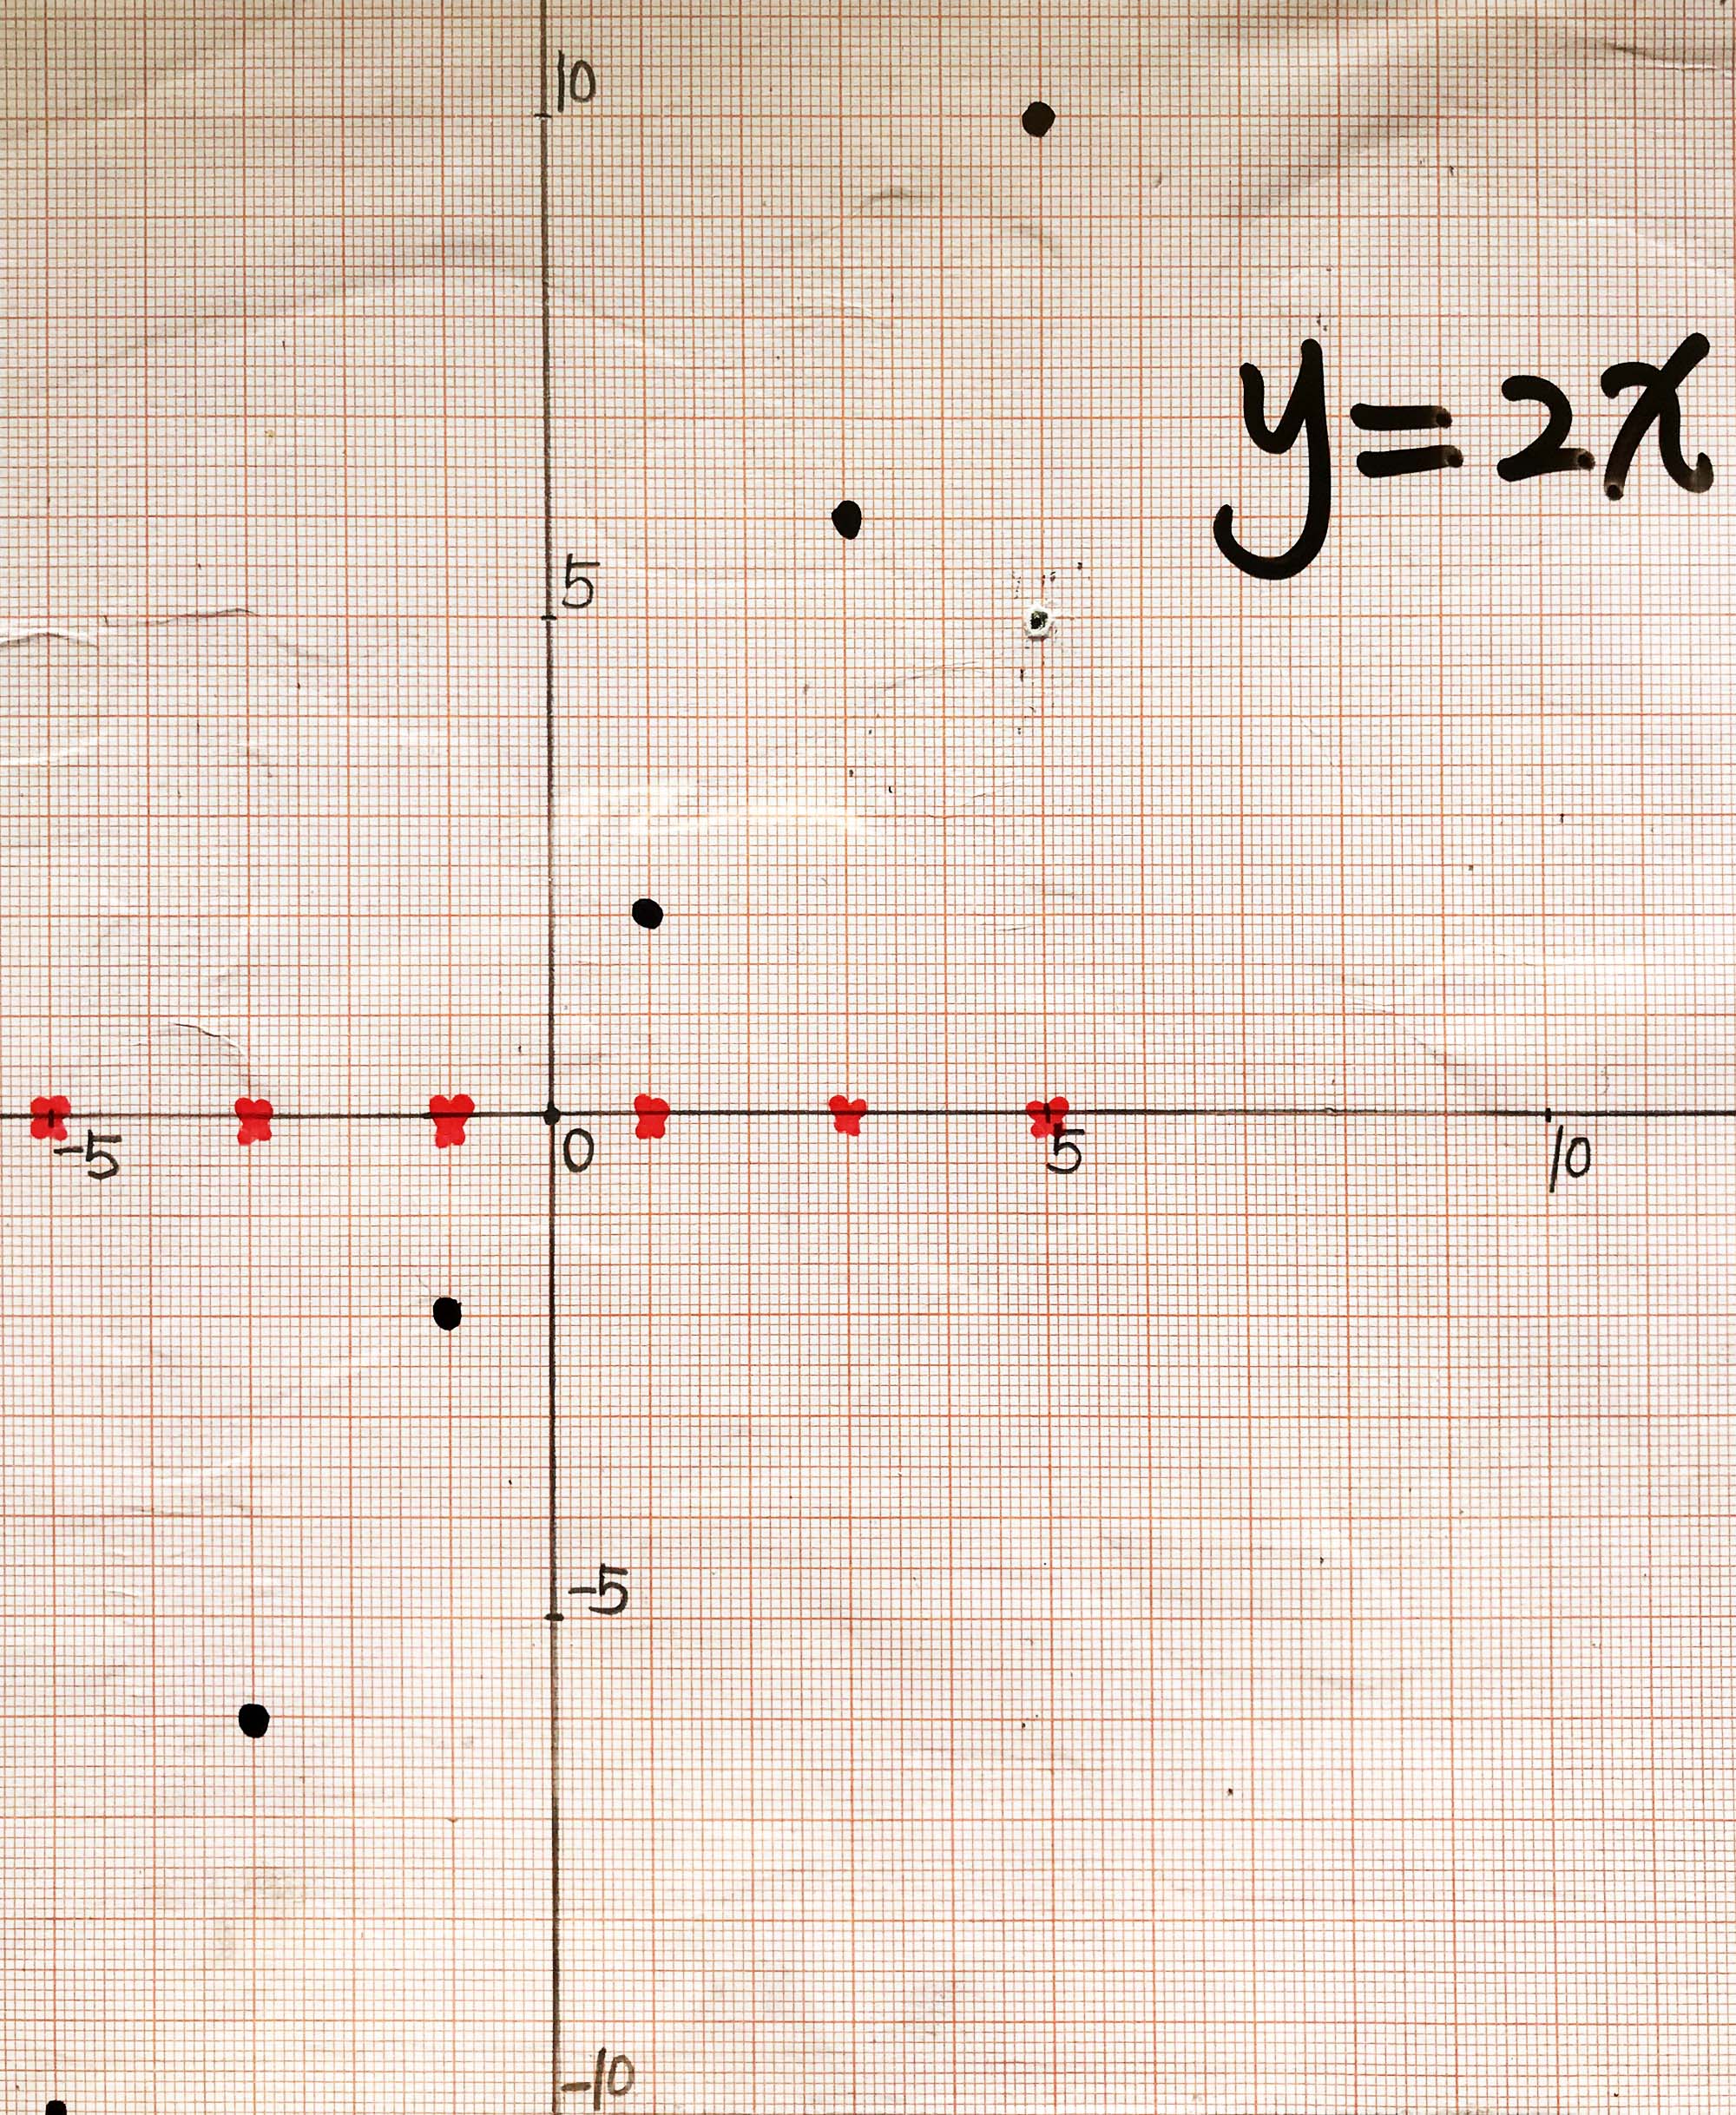 10
y=2x
5
-5 0 5 10
-5
-10